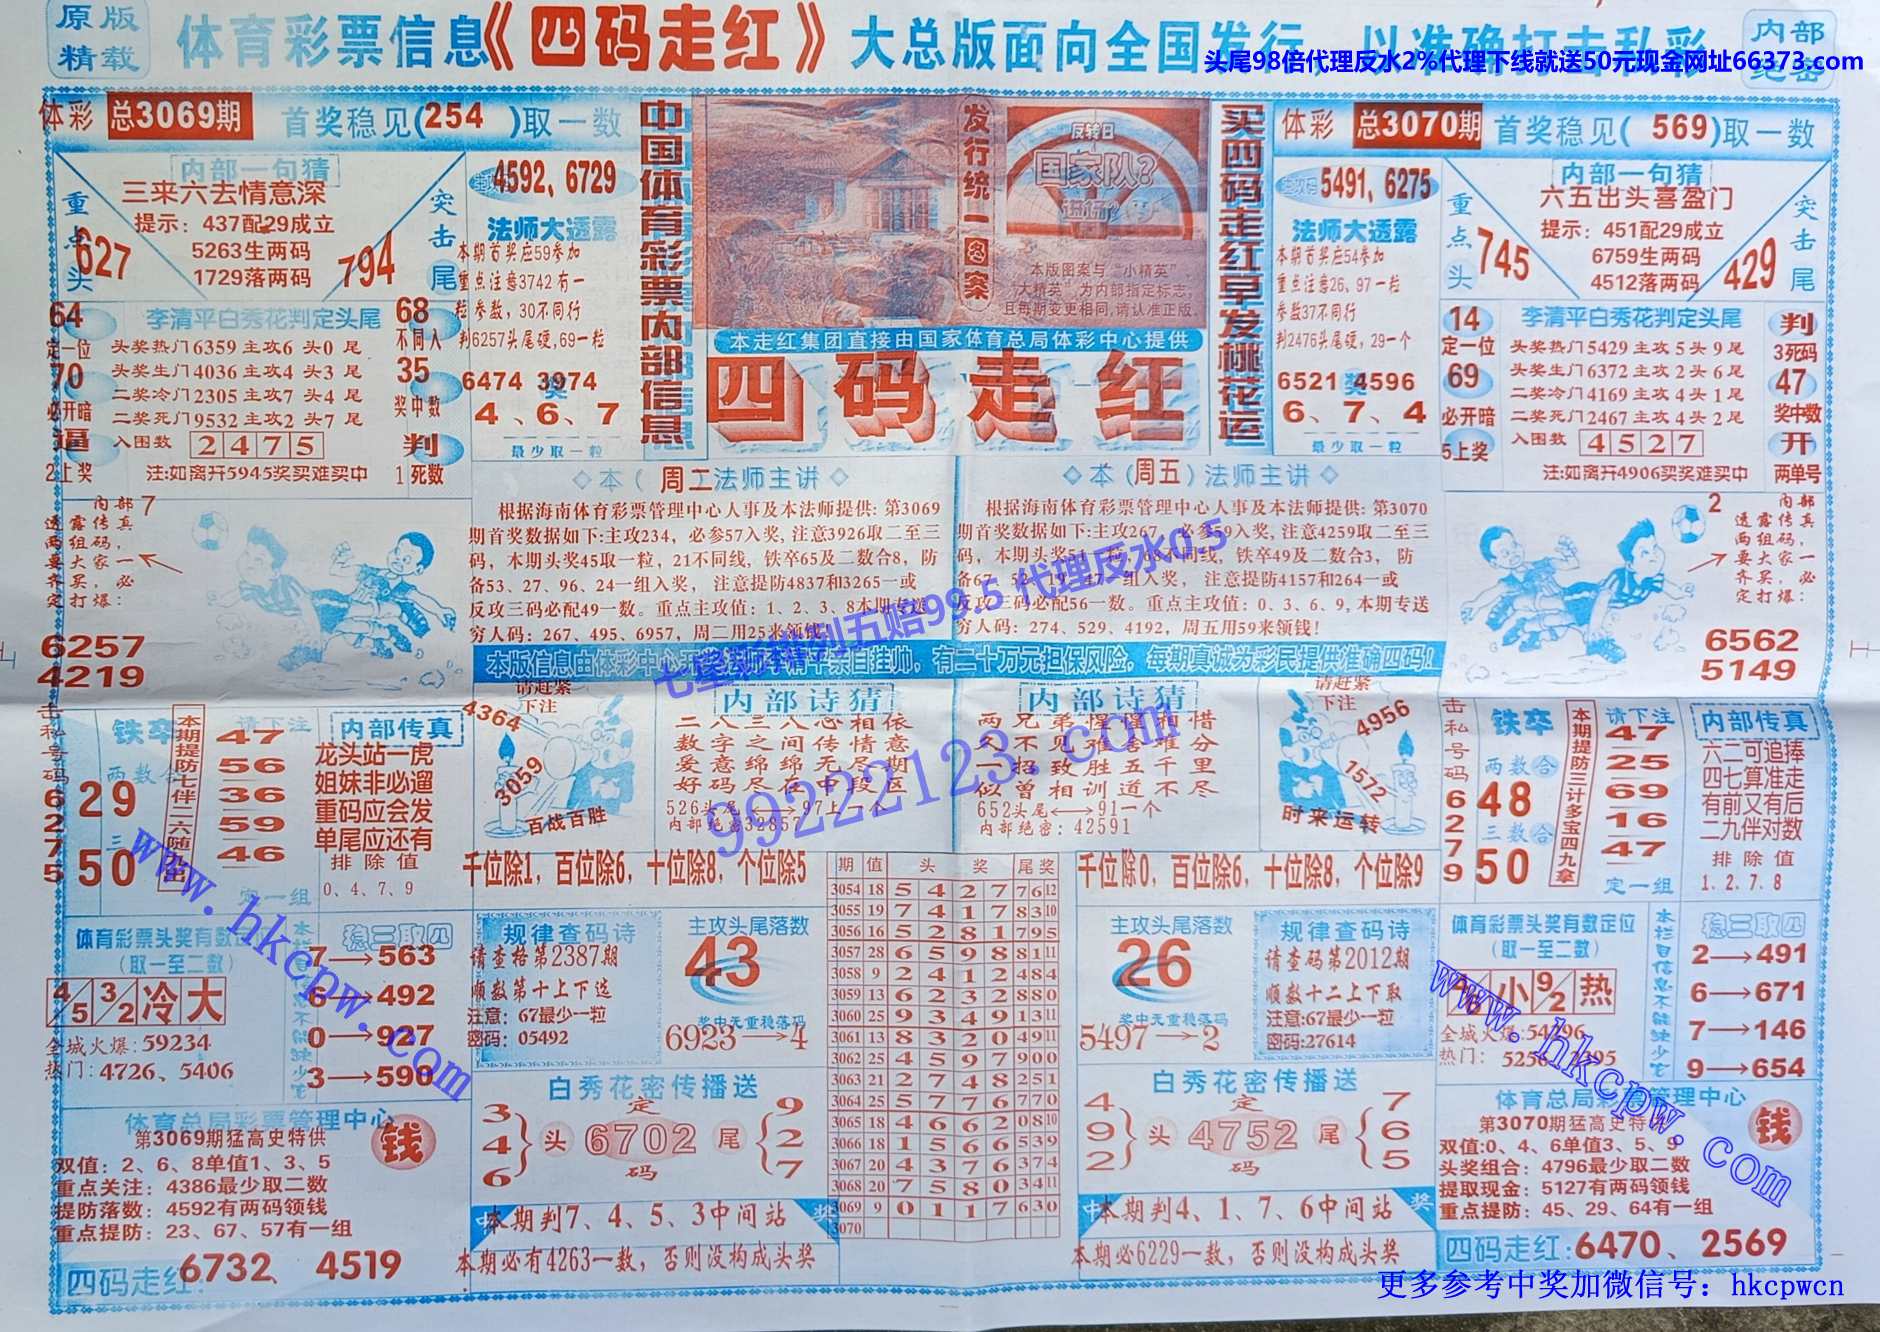 原版
精载
体育彩票信息《四码走红》大总版面向全国发行
内部
头尾98倍代理反水2%代理下线就送50元现金网址66373.com
体彩 总3069期 首奖稳见(254 )取一数
内部一句猜
三来六去情意深
提示: 437配29成立
5263生两码
1729落两码
重点头
627
突击尾
794
4592, 6729
法师大透露
本期首奖应59参加
重点注意3742有一
粒参数, 30不同行
判6257头尾硬,69一粒
6474 3974
4、6、7
最少取一粒
64
定一位
70
必开暗
逼
2上奖
李清平白秀花判定头尾
头奖热门6359主攻6 头0 尾
头奖生门4036主攻4 头3 尾
二奖冷门2305主攻7 头4 尾
二奖死门9532主攻2 头7 尾
入图数 2 4 7 5
注:如离开5945奖买难买中
68
不同入
35
奖中数
判
1死数
中国体育彩票内部信息
发行统一图案
反转日
国家队?
本版图案与“小精英”,
“大精英”为内部指定标志,
且每期变更相同,请认准正版.
本走红集团直接由国家体育总局体彩中心提供
四码走红
买四码走红早发桃花运
体彩 总3070期 首奖稳见( 569)取一数
5491, 6275
法师大透露
本期首奖应54参加
重点注意26、97一粒
参数37不同行
判2476头尾硬, 29一个
6521 4596
6、7、4
最少取一粒
内部一句猜
六五出头喜盈门
提示: 451配29成立
6759生两码
4512落两码
重点头
745
突击尾
429
14
定一位
69
必开暗
5上奖
李清平白秀花判定头尾
头奖热门5429主攻5头9尾
头奖生门6372主攻2头6尾
二奖冷门4169主攻4头1尾
二奖死门2467主攻4头2尾
入图数 4 5 2 7
注:如离开4906买奖难买中
判
3死码
47
奖中数
开
两单号
内部 7
透露传真
两组码,
要大家一
齐买, 必
定打爆:
6257
4219
◇本( 周工法师主讲◇
根据海南体育彩票管理中心人事及本法师提供: 第3069
期首奖数据如下:主攻234, 必参57入奖, 注意3926取二至三
码, 本期头奖45取一粒, 21不同线, 铁卒65及二数合8, 防
备53、27、96、24一组入奖, 注意提防4837和3265一或
反攻三码必配49一数。重点主攻值: 1、2、3、8本期专送
穷人码: 267、495、6957, 周二用25来领钱!
◇本(周五)法师主讲◇
根据海南体育彩票管理中心人事及本法师提供: 第3070
期首奖数据如下:主攻267, 必参59入奖, 注意4259取二至三
码, 本期头奖54一粒, 68不同线, 铁卒49及二数合3, 防
备67、52、19、47一组入奖, 注意提防4157和264一或
反攻三码必配56一数。重点主攻值: 0、3、6、9, 本期专送
穷人码: 274、529、4192, 周五用59来领钱!
七星彩 排列五赔99.5 代理反水0.5
2 内部
透露传真
两组码,
要大家一
齐买, 必
定打爆:
6562
5149
击私号码62755
铁卒
两数合
29
三
50
本期提防七伴二六随九出
请下注
47
56
36
59
46
定一组
内部传真
龙头站一虎
姐妹非必遛
重码应会发
单尾应还有
排除值
0、4、7、9
请赶紧
下注
4364
3059
百战百胜
内部诗猜
二八三八心相依
数字之间传情意
爱意绵绵无尽期
好码尽在中段区
526头尾⟷97上一个
内部绝密32857
内部诗猜
两兄弟惺惺相惜
久不见难舍难分
一招致胜五千里
似曾相训道不尽
652头尾⟷91一个
内部绝密: 42591
99222123.com
请赶紧
下注
4956
1572
时来运转
击私号码6279
铁卒
两数合
48
三数合
50
本期提防三计多宝四九拿
请下注
47
25
69
16
47
定一组
内部传真
六二可追捧
四七算准走
有前又有后
二九伴对数
排除值
1. 2. 7. 8
千位除1, 百位除6, 十位除8, 个位除5
千位除0, 百位除6, 十位除8, 个位除9
体育彩票头奖有数
(取一至二数)
4/5 3/2 冷 大
全城火爆: 59234
热门: 4726、5406
稳三取四
7→563
6→492
0→927
3→590
规律查码诗
请查格第2387期
顺数第十上下选
注意: 67最少一粒
密码: 05492
主攻头尾落数
43
奖中无重稳落码
6923→4
期 值 头 奖 尾奖
3054 18 5 4 2 7 7612
3055 19 7 4 1 7 8310
3056 16 5 2 8 1 795
3057 28 6 5 9 8 8111
3058 9 2 4 1 2 484
3059 13 6 2 3 2 880
3060 25 9 3 4 9 1311
3061 13 8 3 2 0 4911
3062 25 4 5 9 7 900
3063 21 2 7 4 8 251
3064 25 5 7 7 6 770
3065 18 4 6 6 2 0810
3066 18 1 5 6 6 539
3067 20 4 3 7 6 374
3068 20 7 5 8 0 3411
3069 9 0 1 1 7 630
3070
主攻头尾落数
26
奖中无重稳落码
5497→2
规律查码诗
请查码第2012期
顺数十二上下取
注意:67最少一粒
密码:27614
体育彩票头奖有数定位
(取一至二数)
小 9/2 热
全城火爆: 54796
本栏目信息不能缺少它
稳三取四
2→491
6→671
7→146
9→654
体育总局彩票管理中心
第3069期猛高史特供
钱
双值: 2、6、8单值1、3、5
重点关注: 4386最少取二数
提防落数: 4592有两码领钱
重点提防: 23、67、57有一组
四码走红: 6732、4519
白秀花密传播送
3 4 6
头 定 6702 码 尾
9 2 7
本期判7、4、5、3中间站
本期必有4263一数, 否则没构成头奖
白秀花密传播送
4 9 2
头 定 4752 码 尾
7 6 5
本期判4、1、7、6中间站
本期必6229一数, 否则没构成头奖
体育总局彩票管理中心
第3070期猛高史特
钱
双值:0、4、6单值3、5、9
头奖组合: 4796最少取二数
提取现金: 5127有两码领钱
重点提防: 45、29、64有一组
四码走红:6470、2569
www.hkcpw.com
www.hkcpw.com
更多参考中奖加微信号: hkcpwcn